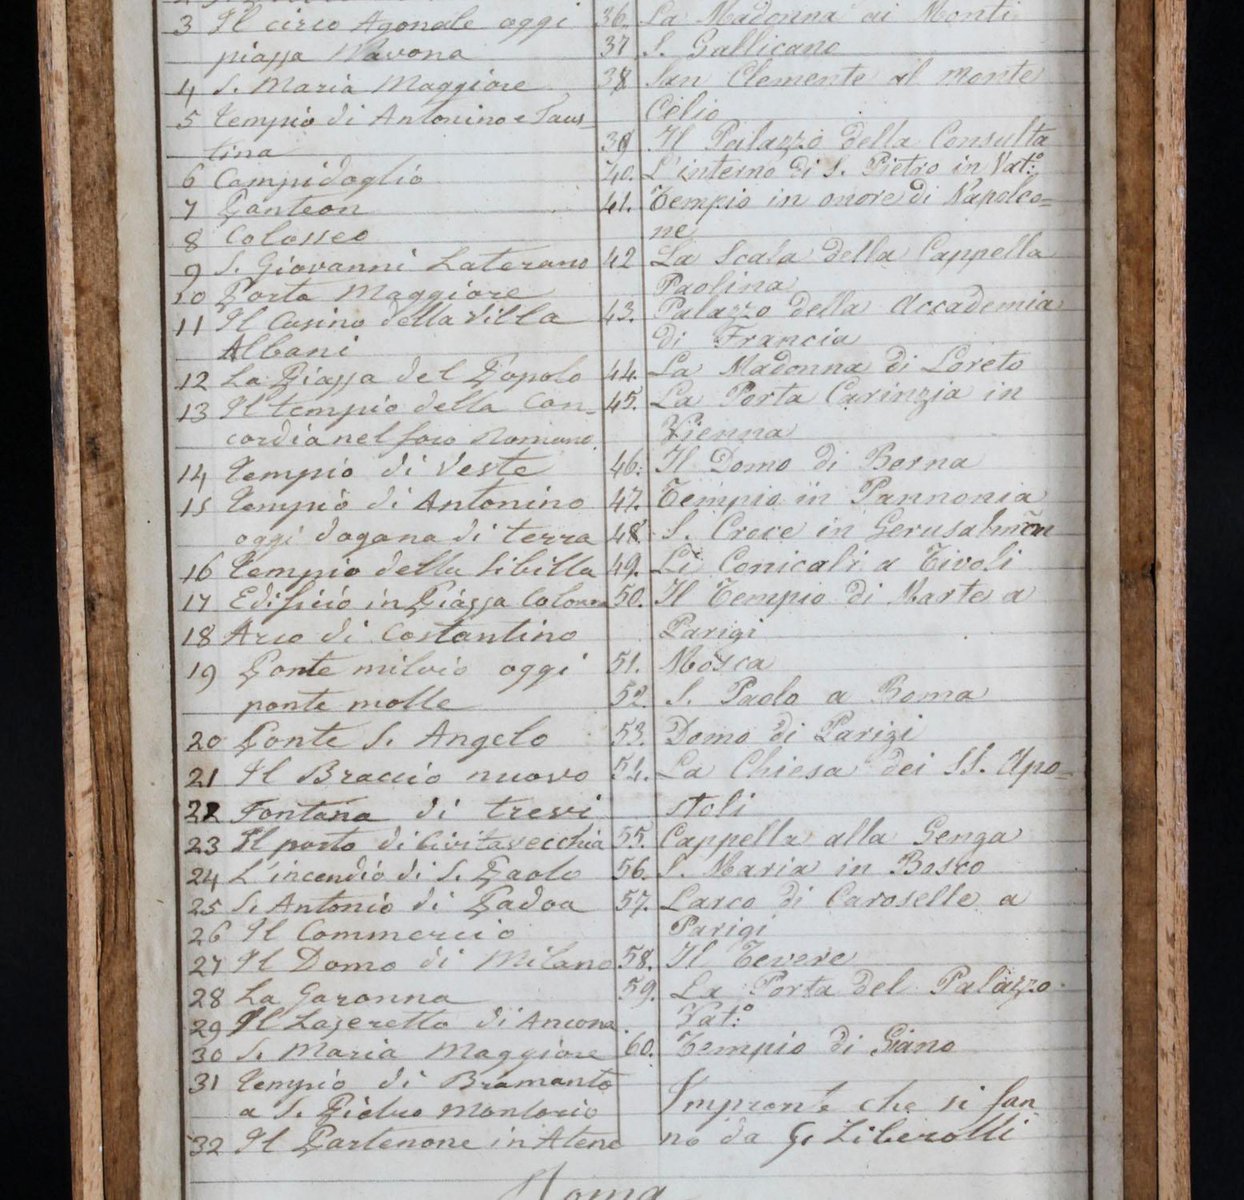 3 Il circo Agonale oggi
piazza Navona
4 S. Maria Maggiore
5 Tempio di Antonino e Faus-
tina
6 Campidoglio
7 Panteon
8 Colosseo
9 S. Giovanni Laterano
10 Porta Maggiore
11 Il Casino della Villa
Albani
12 La Piazza del Popolo
13 Il tempio della Con-
cordia nel foro Romano
14 Tempio di Veste
15 Tempio di Antonino
oggi dogana di terra
16 Tempio della Sibilla
17 Edificio in Piazza Colonna
18 Arco di Costantino
19 Ponte milvio oggi
ponte molle
20 Ponte S. Angelo
21 Il Braccio nuovo
22 Fontana di trevi
23 Il porto di Civitavecchia
24 L'incendio di S. Paolo
25 S. Antonio di Padoa
26 Il Commercio
27 Il Domo di Milano
28 La Garonna
29 Il Lazeretto di Ancona
30 S. Maria Maggiore
31 Tempio di Bramante
a S. Pietro Montorio
32 Il Partenone in Atene
36. La Madonna ai Monti
37 S. Gallicano
38 San Clemente al monte
Celio
39 Il Palazzo della Consulta
40. L'interno di S. Pietro in Vat.º
41. Tempio in onore di Napoleo=
ne
42 La Scala della Cappella
Paolina
43. Palazzo della Accademia
di Francia
44. La Madonna di Loreto
45. La Porta Carinzia in
Vienna
46. Il Domo di Berna
47. Tempio in Pannonia
48. S. Croce in Gerusalm̃m
49. Li Conicali a Tivoli
50. Il Tempio di Marte a
Parigi
51. Mosca
52. S. Paolo a Roma
53. Domo di Parigi
54. La Chiesa dei SS. Apo=
stoli
55. Cappella alla Genga
56. S. Maria in Bosco
57. Larco di Caroselle a
Parigi
58. Il Tevere
59. La Porta del Palazzo
Vat.º
60. Tempio di Giano
Impronte che si fan
no da G. Liberotti
Roma